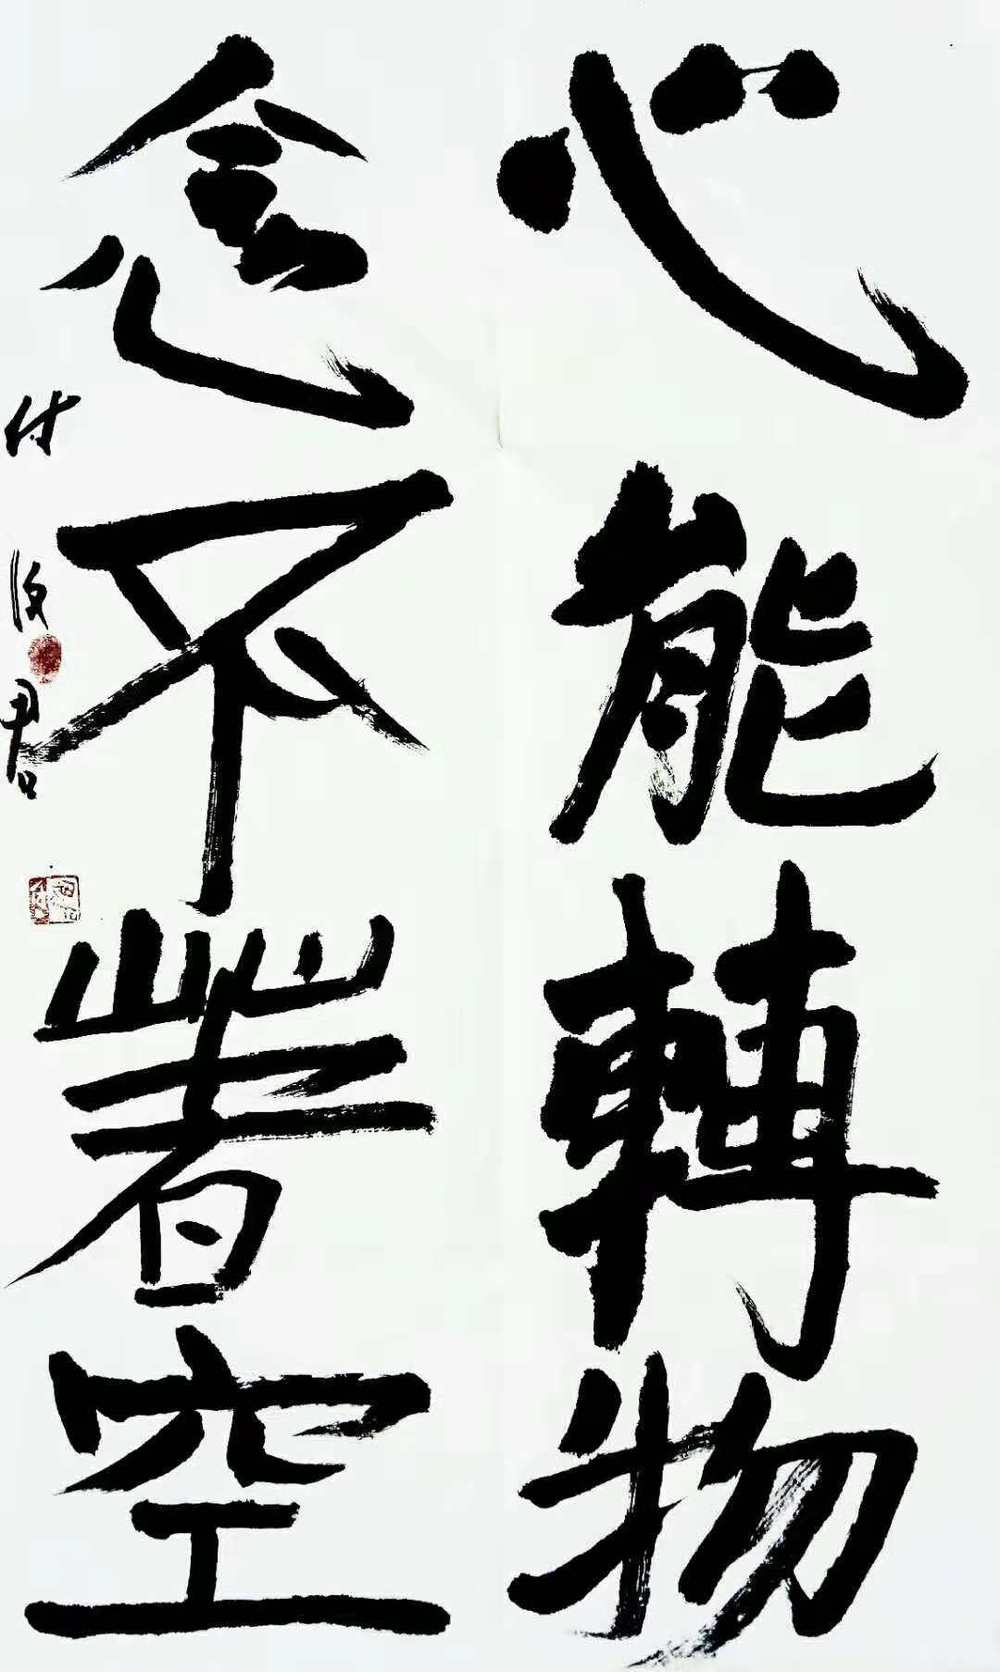 心能轉物
念不著空
付俊君